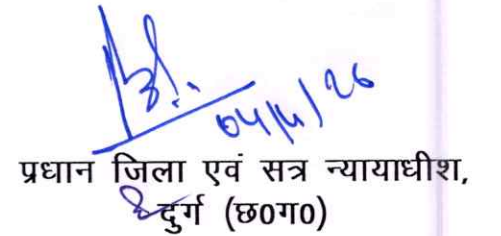 04/4/26
प्रधान जिला एवं सत्र न्यायाधीश,
दुर्ग (छ0ग0)